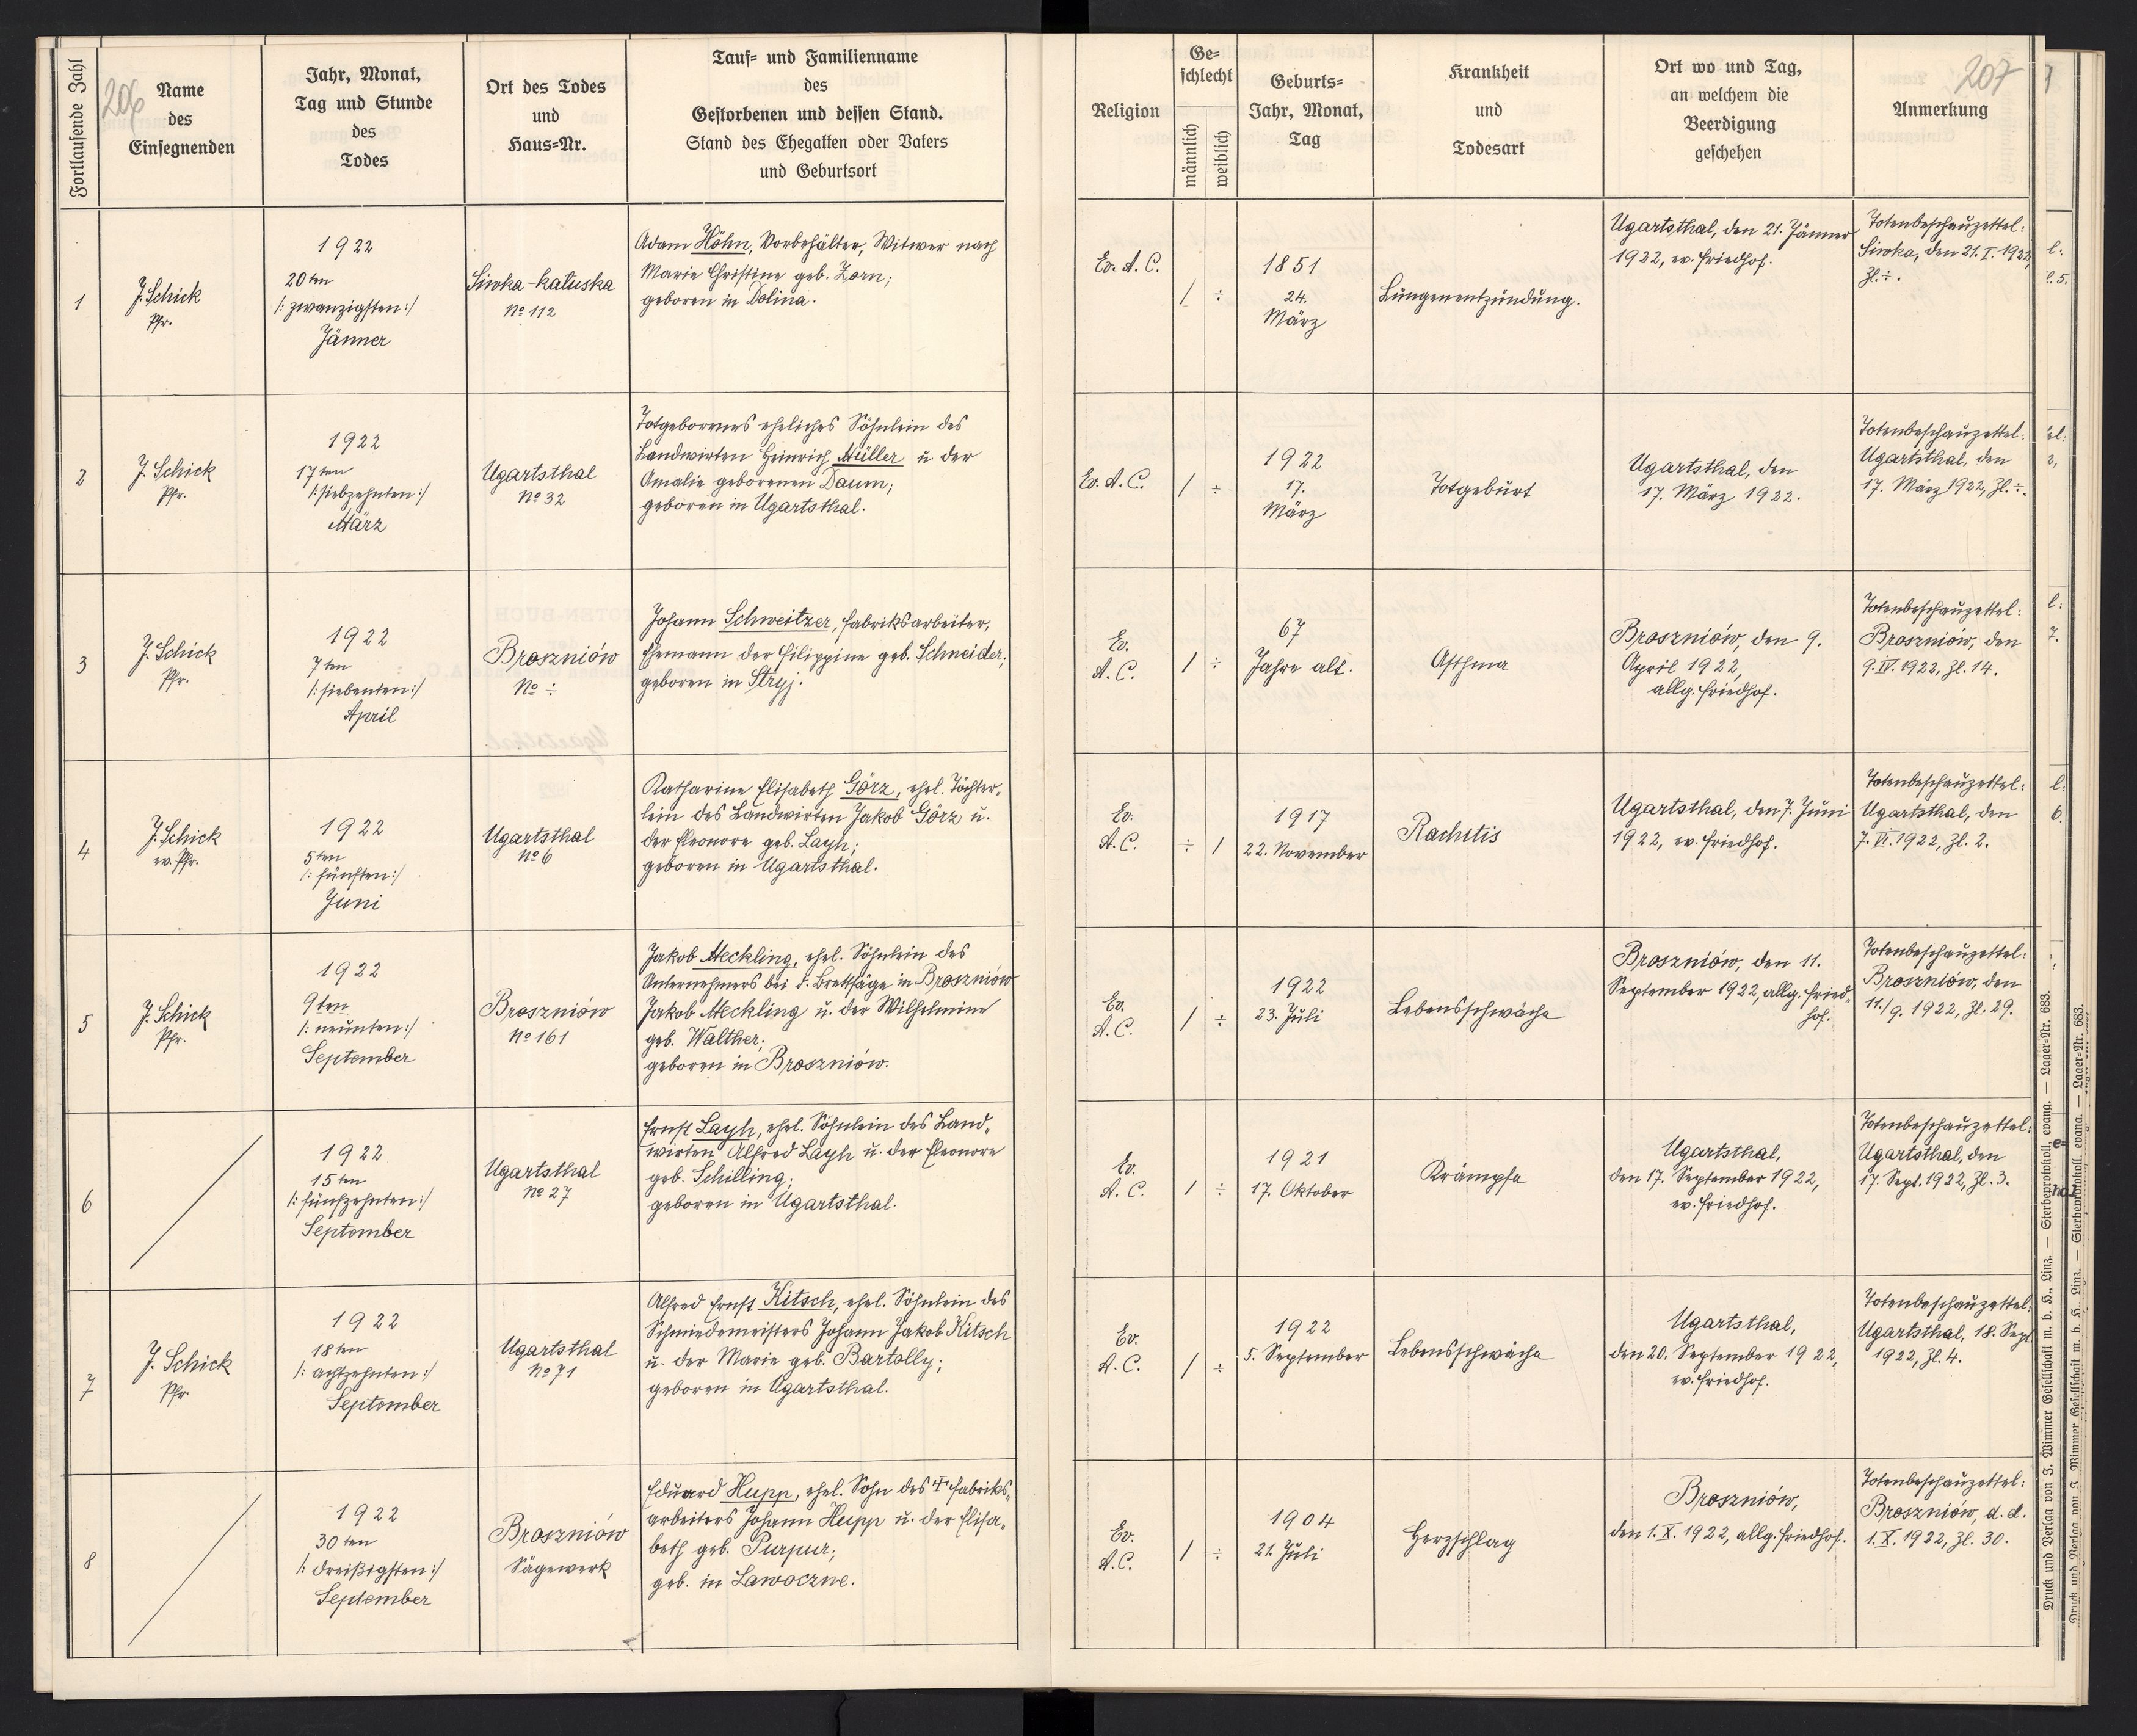 206
Fortlaufende Zahl
Name
des
Einsegnenden
Jahr, Monat,
Tag und Stunde
des
Todes
Ort des Todes
und
Haus=Nr.
Tauf= und Familienname
des
Gestorbenen und dessen Stand.
Stand des Ehegatten oder Vaters
und Geburtsort
Religion
Ge=
schlecht
männlich
weiblich
Geburts=
Jahr, Monat,
Tag
Krankheit
und
Todesart
Ort wo und Tag,
an welchem die
Beerdigung
geschehen
207
Anmerkung
1
J. Schick
Pfr.
1922
20ten
/: zwanzigsten :/
Jänner
Siwka-kałuska
No 112
Adam Höhn, Vorbehälter, Witwer nach
Marie Christine geb. Zorn;
geboren in Dolina.
Ev. A. C.
/ ÷
1851
24.
März
Lungenentzündung.
Ugartsthal, den 21. Jänner
1922, ev. Friedhof.
Totenbeschauzettel:
Siwka, den 21. I. 1922,
Zl. ÷.
2
J. Schick
Pfr.
1922
17ten
/: siebzehnten :/
März
Ugartsthal
No 32
Totgeborenes eheliches Söhnlein des
Landwirten Heinrich Müller u. der
Amalie geborenen Daum;
geboren in Ugartsthal.
Ev. A. C.
/ ÷
1922
17.
März
Totgeburt
Ugartsthal, den
17. März 1922.
Totenbeschauzettel:
Ugartsthal, den
17. März 1922, Zl. ÷.
3
J. Schick
Pfr.
1922
7ten
/: siebenten :/
April
Broszniów
No ÷
Johann Schweitzer, Fabriksarbeiter,
Ehemann der Filippine geb. Schneider;
geboren in Stryj.
Ev.
A. C.
/ ÷
67
Jahre alt.
Asthma
Broszniów, den 9.
April 1922,
allg. Friedhof.
Totenbeschauzettel:
Broszniów, den
9. IV. 1922, Zl. 14.
4
J. Schick
ev. Pfr.
1922
5ten
/: fünften :/
Juni
Ugartsthal
No 6
Katharine Elisabeth Görz, ehel. Töchter-
lein des Landwirten Jakob Görz u.
der Eleonore geb. Layh;
geboren in Ugartsthal.
Ev.
A. C.
÷ /
1917
22. November
Rachitis
Ugartsthal, den 7. Juni
1922, ev. Friedhof.
Totenbeschauzettel:
Ugartsthal, den
7. VI. 1922, Zl. 2.
5
J. Schick
Pfr.
1922
9ten
/: neunten :/
September
Broszniów
No 161
Jakob Meckling, ehel. Söhnlein des
Unternehmers bei d. Brettsäge in Broszniów
Jakob Meckling u. der Wilhelmine
geb. Walther;
geboren in Broszniów.
Ev.
A. C.
/ ÷
1922
23. Juli
Lebensschwäche
Broszniów, den 11.
September 1922, allg. Fried-
hof.
Totenbeschauzettel:
Broszniów, den
11./9. 1922, Zl. 29.
6
1922
15ten
/: fünfzehnten :/
September
Ugartsthal
No 27
Ernst Layh, ehel. Söhnlein des Land-
wirten Alfred Layh u. der Eleonore
geb. Schilling;
geboren in Ugartsthal.
Ev.
A. C.
/ ÷
1921
17. Oktober
Krämpfe
Ugartsthal,
den 17. September 1922,
ev. Friedhof.
Totenbeschauzettel:
Ugartsthal, den
17. Sept. 1922, Zl. 3.
7
J. Schick
Pfr
1922
18ten
/: achtzehnten :/
September
Ugartsthal
No 71
Alfred Ernst Kitsch, ehel. Söhnlein des
Schmiedemeisters Johann Jakob Kitsch
u. der Marie geb. Bartolly;
geboren in Ugartsthal.
Ev.
A. C.
/ ÷
1922
5. September
Lebensschwäche
Ugartsthal,
den 20. September 1922,
ev. Friedhof.
Totenbeschauzettel:
Ugartsthal, 18. Sept.
1922, Zl. 4.
8
1922
30ten
/: dreißigsten :/
September
Broszniów
Sägewerk
Eduard Hupp, ehel. Sohn des † Fabriks-
arbeiters Johann Hupp u. der Elisa-
beth geb. Purpur;
geb. in Lawoczne.
Ev.
A. C.
/ ÷
1904
21. Juli
Herzschlag
Broszniów,
den 1. X. 1922, allg. Friedhof.
Totenbeschauzettel:
Broszniów, d. d.
1. X. 1922, Zl. 30.
Druck und Verlag von J. Wimmer Gesellschaft m. b. H., Linz. — Sterbeprotokoll, evang. — Lager=Nr. 683.
Druck und Verlag von J. Wimmer Gesellschaft m. b. H., Linz. — Sterbeprotokoll, evang. — Lager=Nr. 683.